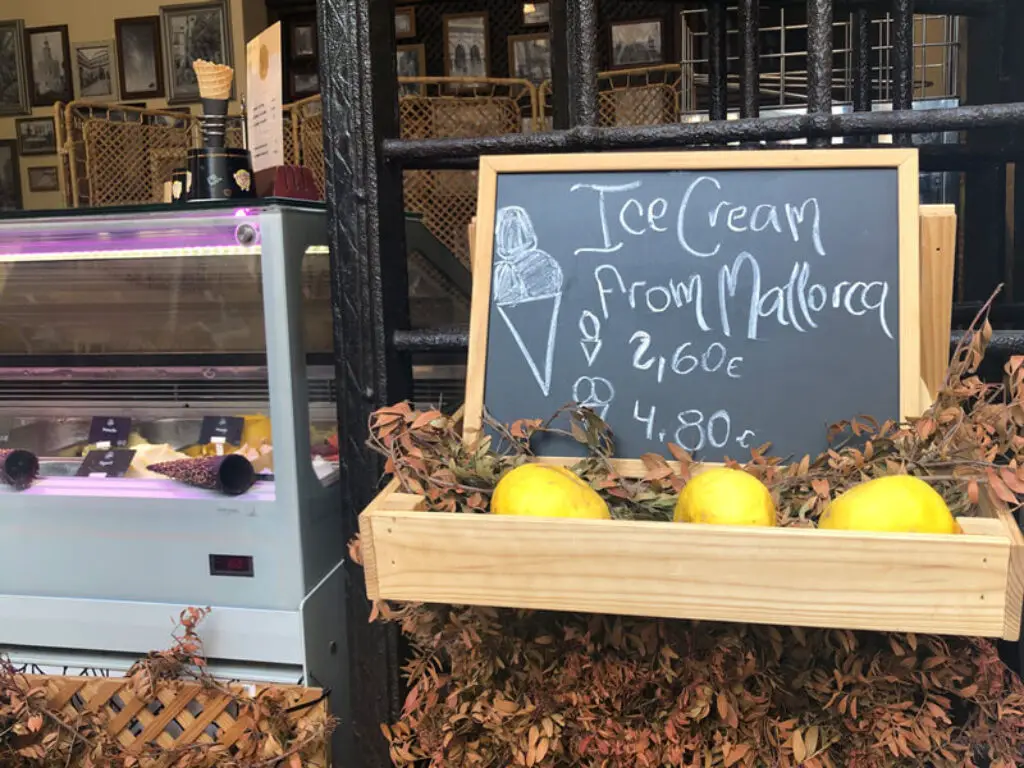 Ice Cream
From Mallorca
2,60€
4.80€